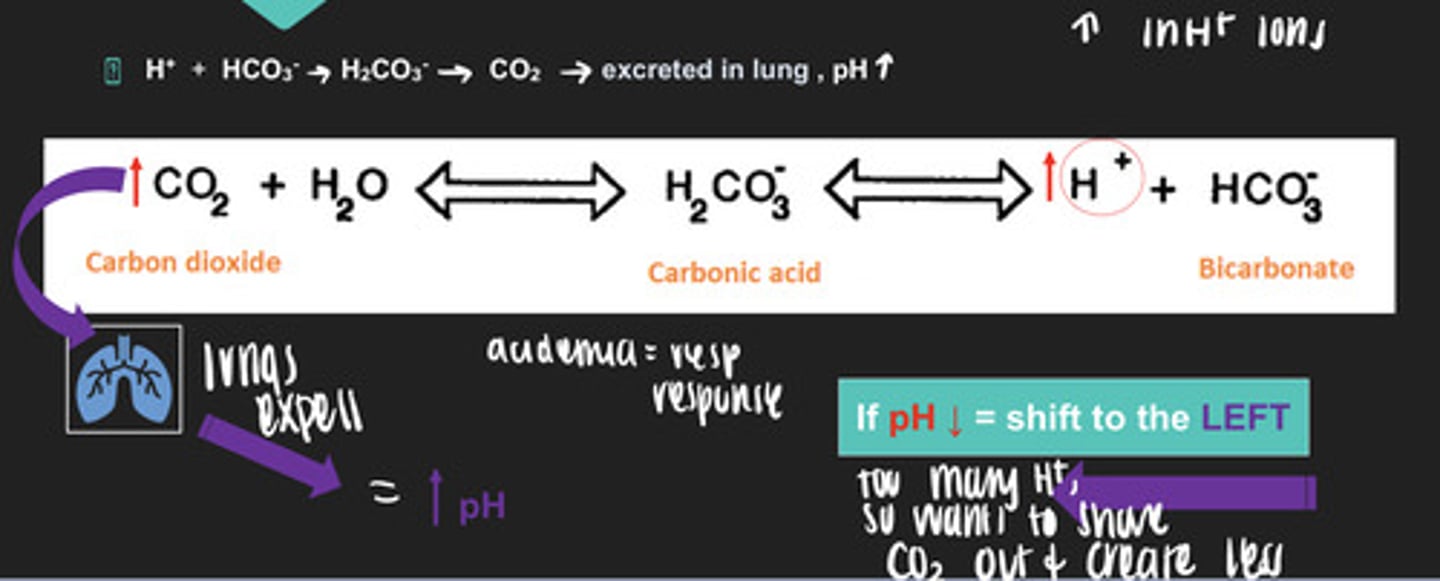 ↑ in H⁺ ions
H⁺ + HCO₃⁻ → H₂CO₃⁻ → CO₂ → excreted in lung , pH ↑
↑ CO₂ + H₂O ⇔ H₂CO₃⁻ ⇔ ↑ H⁺ + HCO₃⁻
Carbon dioxide
Carbonic acid
Bicarbonate
lungs
expell
acidemia = resp
response
= ↑ pH
If pH ↓ = shift to the LEFT
too many H⁺,
so want to
CO₂ out & create less